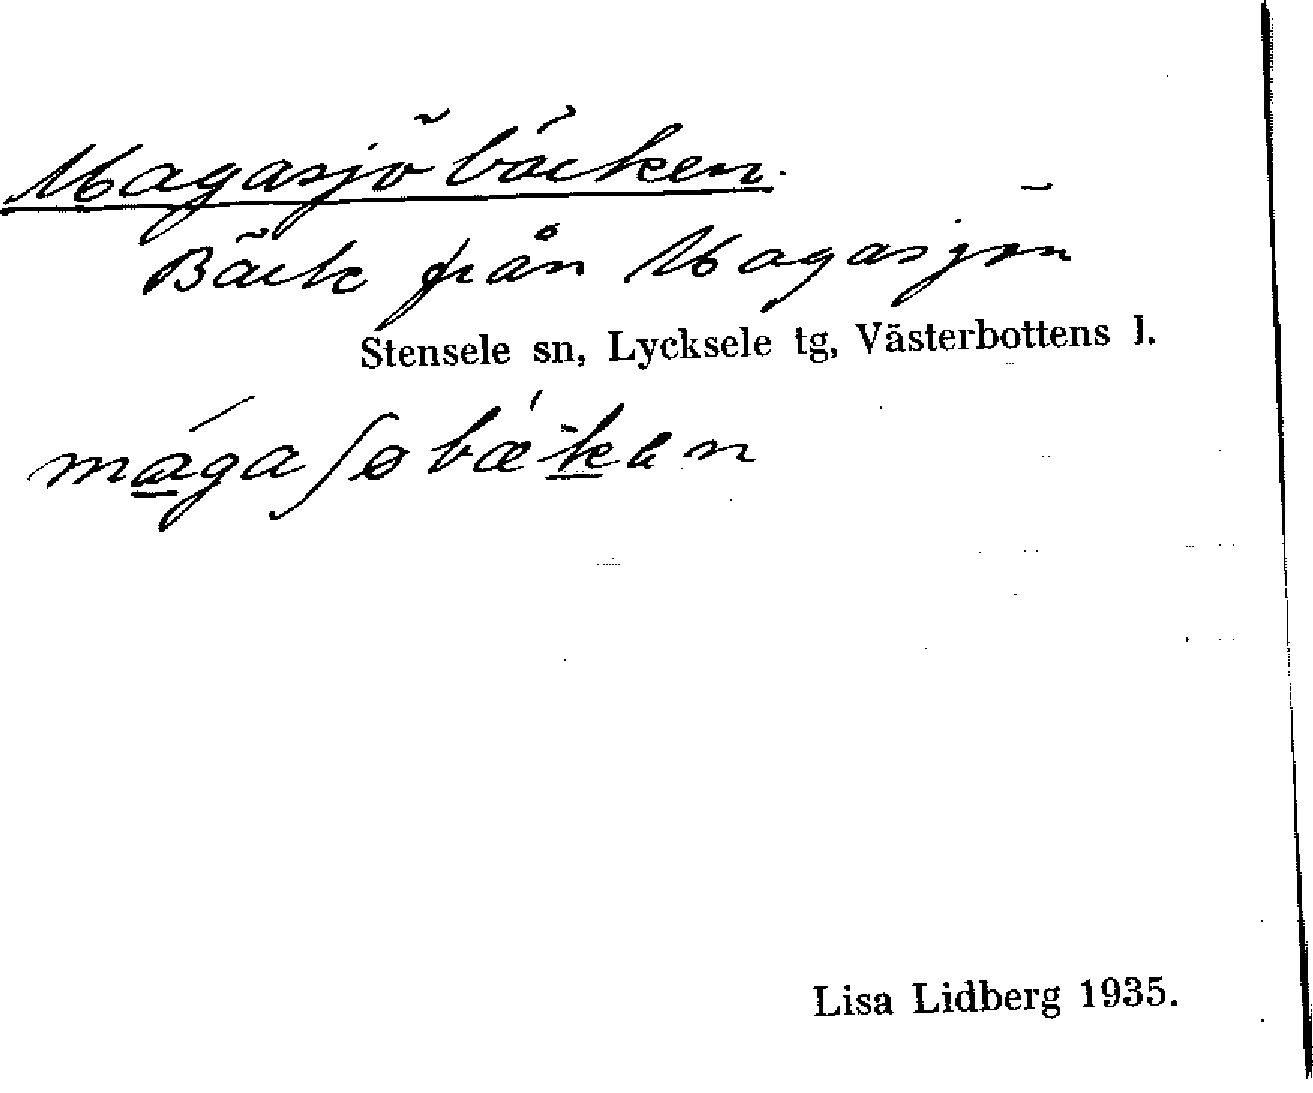 Magasjöbäcken.
Bäck från Magasjön
Stensele sn, Lycksele tg, Västerbottens l.
mágaʃøbæ̀kan
Lisa Lidberg 1935.